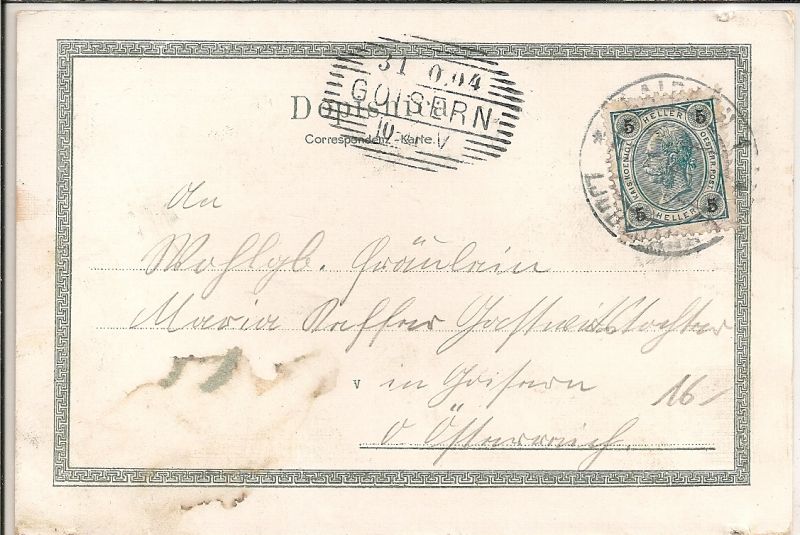 Dopisnica.
Correspondenz-Karte.
31 0.04
GOISERN
10 V
5 HELLER 5
KAIS. KOENIGL. OESTERR. POST
5 HELLER 5
An
Wohlgb. Fräulein
Maria Gastwirtstochter
v in Goisern
16
O Österreich.